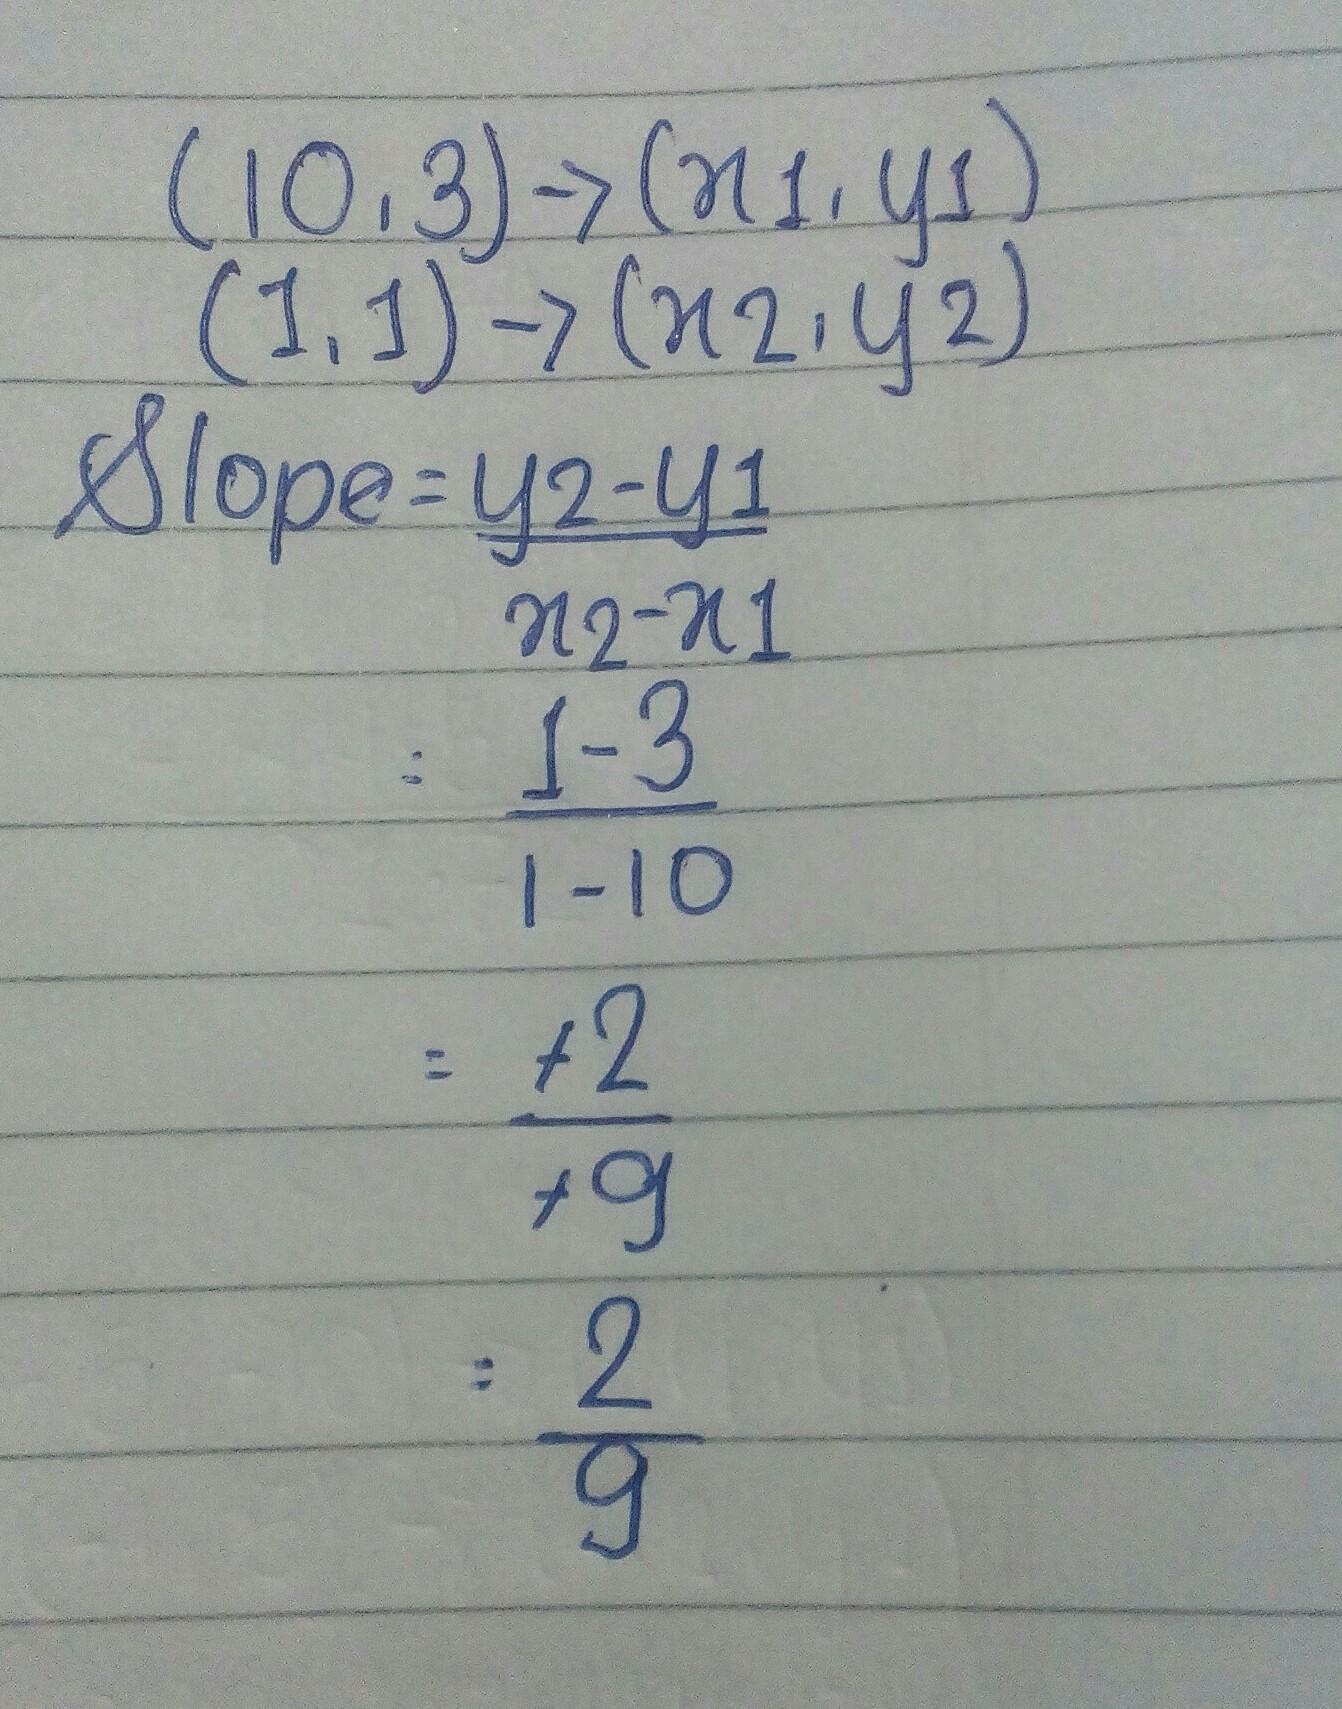 (10,3)->(x1,y1)
(1,1)->(x2,y2)
Slope=y2-y1
x2-x1
= 1-3
1-10
= +2
+9
= 2
9